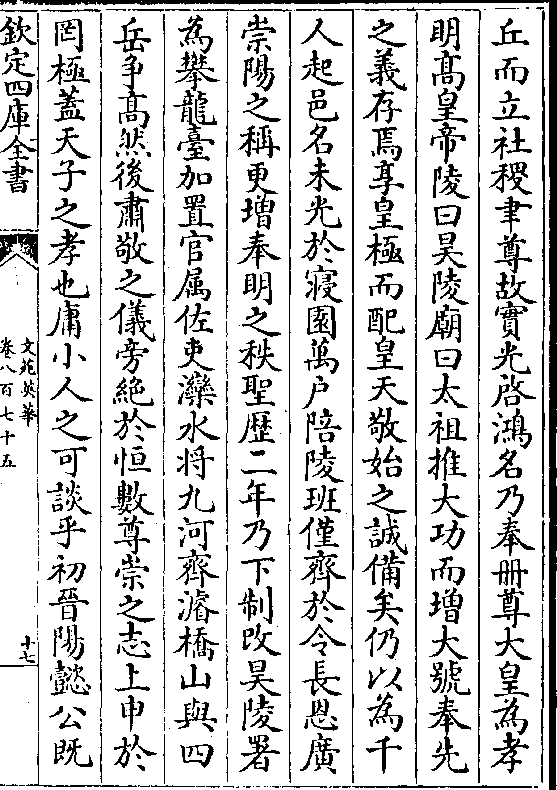 丘而立社稷聿尊故實光啓鴻名乃奉册尊大皇為孝
明髙皇帝陵曰昊陵廟曰太祖推大功而增大號奉先
之義存焉享皇極而配皇天敬始之誠備矣仍以為千
人起邑名未光於寢園萬户陪陵班僅齊於令長恩廣
崇陽之稱更增奉明之秩聖歴二年乃下制改昊陵署
為攀龍臺加置官属佐吏灤水将九河齊濬橋山與四
岳争髙然後肅敬之儀旁絶於恒數尊崇之志上申於
罔極葢天子之孝也庸小人之可談乎初晉陽懿公既
欽定四庫全書
文苑英華
卷八百七十五
十七